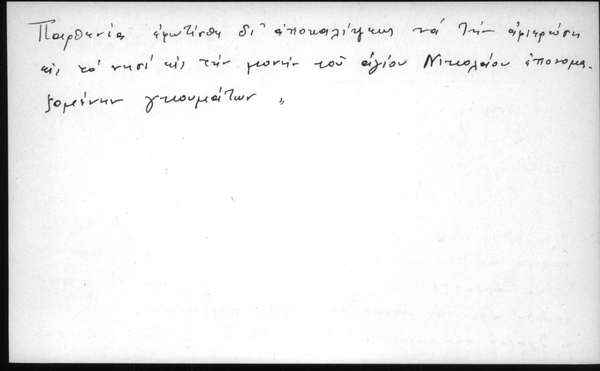 Παρθενία ἐφωτίσθη δι' ἀποκαλύψεως νά τήν ἀφιερώση
εἰς τό νησί εἰς τήν μονήν τοῦ ἁγίου Νικολάου ἐπονομα-
ζομένην γκουμάτων "